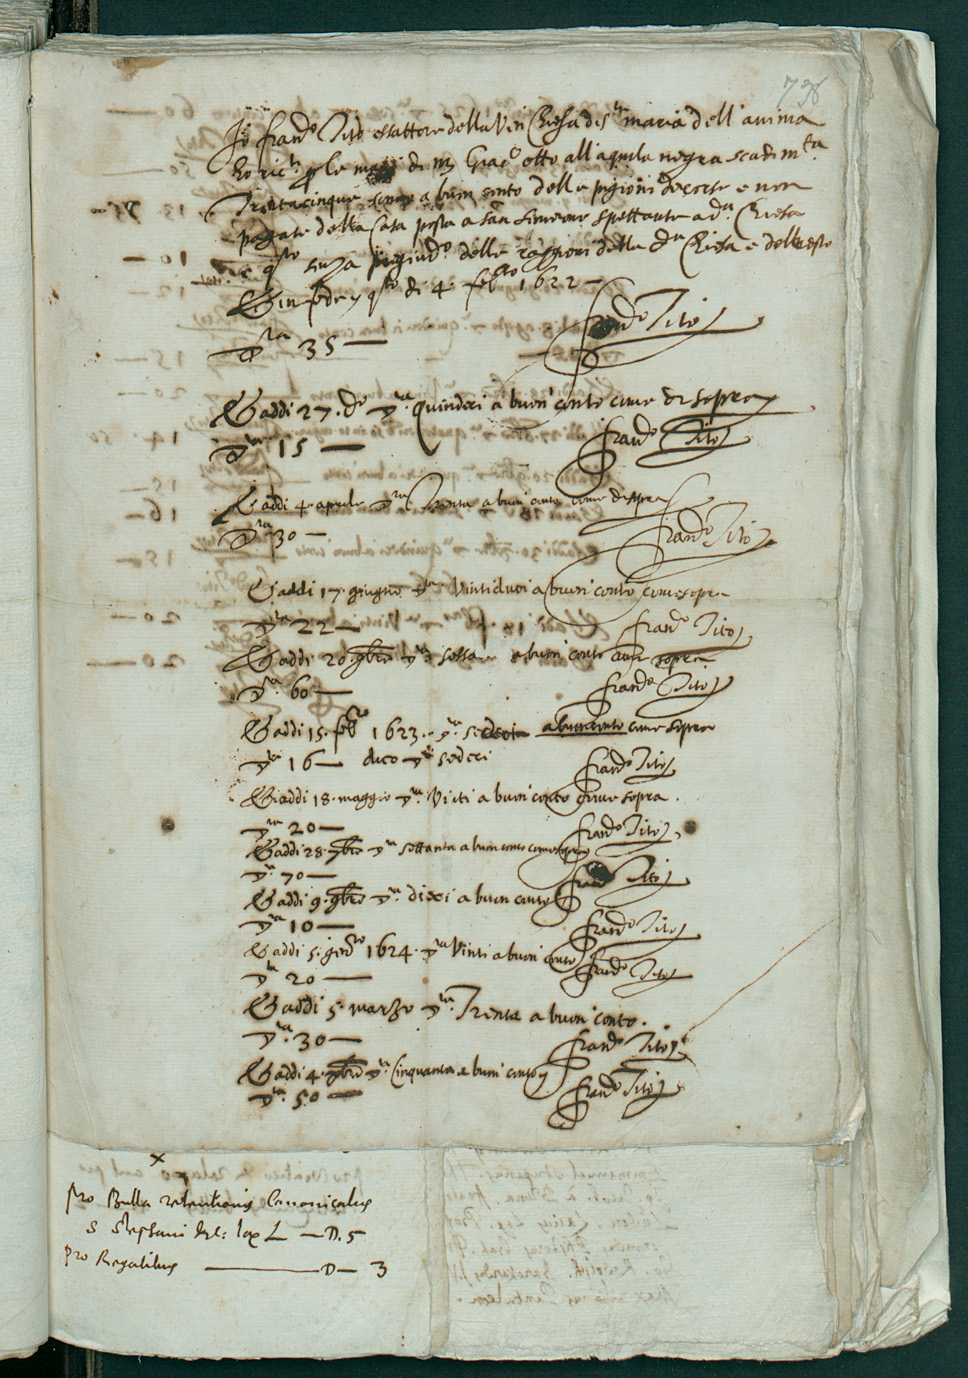 738
Io Franc.o Tito esattore della Ven Chiesa di S.ta maria dell'anima
ho ric.to p le mani di m Giac.o otto all'aquila negra scudi m.ta
Trentacinque a buon conto delle pigioni decorse e non
pagate della Casa posta a san simeone spettante a d.a Chiesa
e q.sto senza pregiud.o delle raggioni della d.a Chiesa e
Et in fede q.sto di 4 feb.ro 1622
Franc.o Tito
▽.ta 35 —
E addi 27. d.o ▽.ta quindeci a buon conto come di sopra
▽.ta 15 —
Franc.o Tito
E addi 4 aprile ▽.ta Trenta a buon conto come di sopra
▽.ta 30 —
Franc.o Tito
E addi 17. giugno ▽.ta Vintidue a buon conto come sopra
▽.ta 22 —
Franc.o Tito
E addi 20 9bre ▽.ta sessanta a buon conto come sopra
▽.ta 60 —
Franc.o Tito
E addi 15. feb.ro 1623. ▽.ta a buon conto come sopra
▽.ta 16 — dico ▽.ta sedeci
Franc.o Tito
E addi 18. maggio ▽.ta Vinti a buon conto come sopra.
▽.ta 20 —
Franc.o Tito
E addi 28. 7bre ▽.ta settanta a buon conto come sopra
▽.ta 70 —
Franc.o Tito
E addi 9. 9bre ▽.ta dieci a buon conto
▽.ta 10 —
Franc.o Tito
E addi 5. gen.ro 1624. ▽.ta Vinti a buon conto
▽.ta 20 —
Franc.o Tito
E addi 5. marzo ▽.ta Trenta a buon conto.
▽.ta 30 —
Franc.o Tito
E addi 4. ▽.ta Cinquanta a buon conto
▽.ta 50 —
Franc.o Tito
x
pro Bulla retentionis Canonicatus
S Stephani — D. 5
pro Regalibus — D — 3